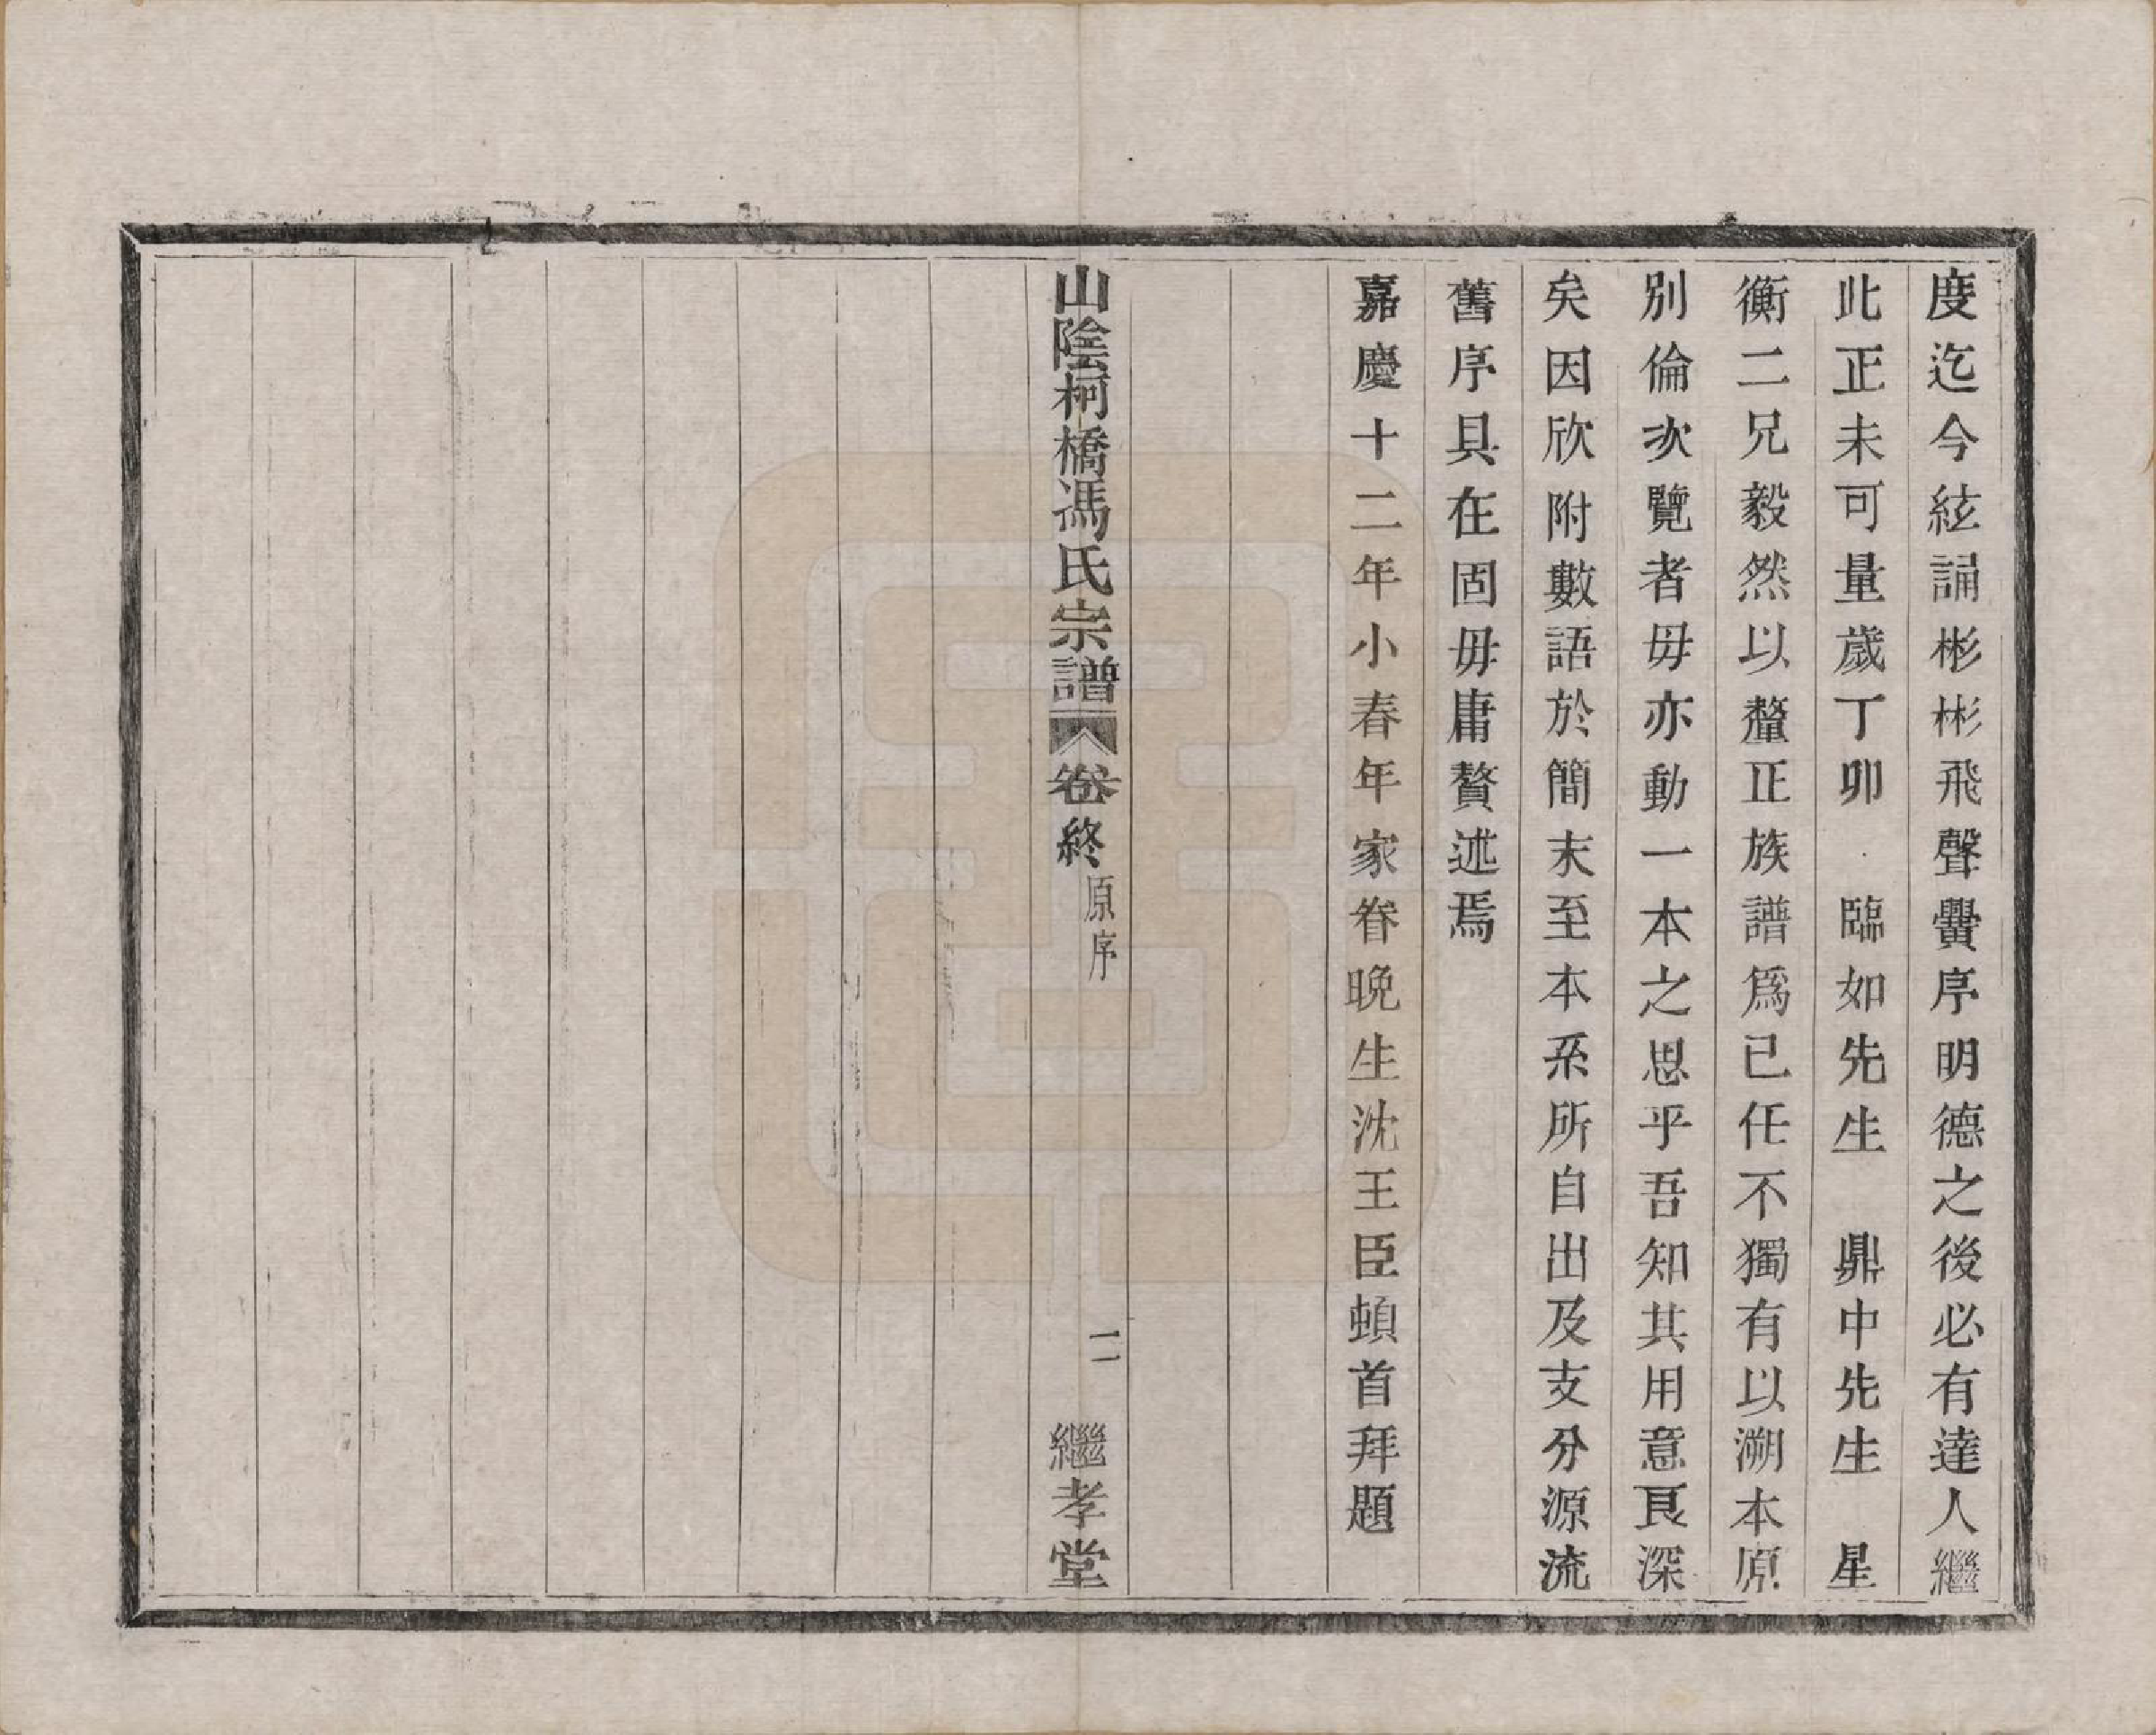 度迄今絃誦彬彬飛聲黌序明德之後必有達人繼
此正未可量歲丁卯　臨如先生　鼎中先生　星
衡二兄毅然以釐正族譜爲己任不獨有以溯本原
別倫次覽者毋亦動一本之思乎吾知其用意良深
矣因欣附數語於簡末至本系所自出及支分源流
舊序具在固毋庸贅述焉
嘉慶十二年小春年家眷晚生沈王臣頓首拜題
山陰柯橋馮氏宗譜　卷終　原序　二　繼孝堂